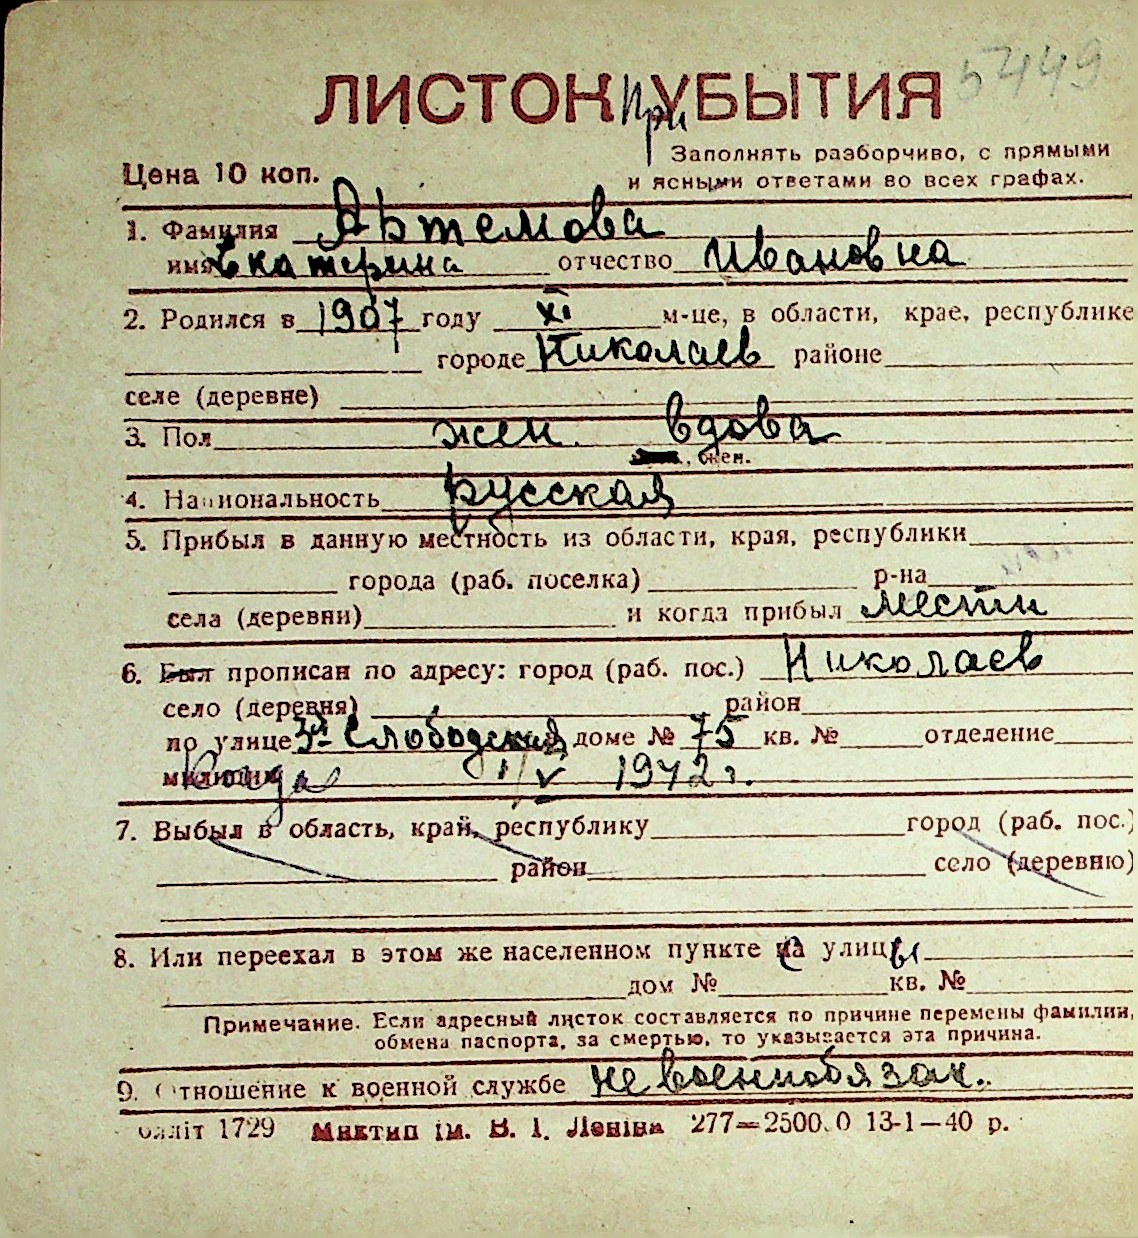 5449
ЛИСТОК При УБЫТИЯ
Цена 10 коп.
Заполнять разборчиво, с прямыми
и ясными ответами во всех графах.
1. Фамилия Артемова
имя Екатерина отчество Ивановна
2. Родился в 1907 году XI м-це, в области, крае, республике
городе Николаев районе
селе (деревне)
3. Пол жен. вдова
, жен.
4. Национальность русская
5. Прибыл в данную местность из области, края, республики
города (раб. поселка) р-на
села (деревни) и когда прибыл местн
6. Был прописан по адресу: город (раб. пос.) Николаев
село (деревня) район
по улице 3я Слободская доме № 75 кв. № отделение
милиции Когда 1/V 1942 г.
7. Выбыл в область, край, республику город (раб. пос.)
район село (деревню)
8. Или переехал в этом же населенном пункте с улицы
дом № кв. №
Примечание. Если адресный листок составляется по причине перемены фамилии,
обмена паспорта, за смертью, то указывается эта причина.
9. Отношение к военной службе не военнобязан.
1729 Миктип ім. В. І. Леніна 277—2500.0 13-1—40 р.